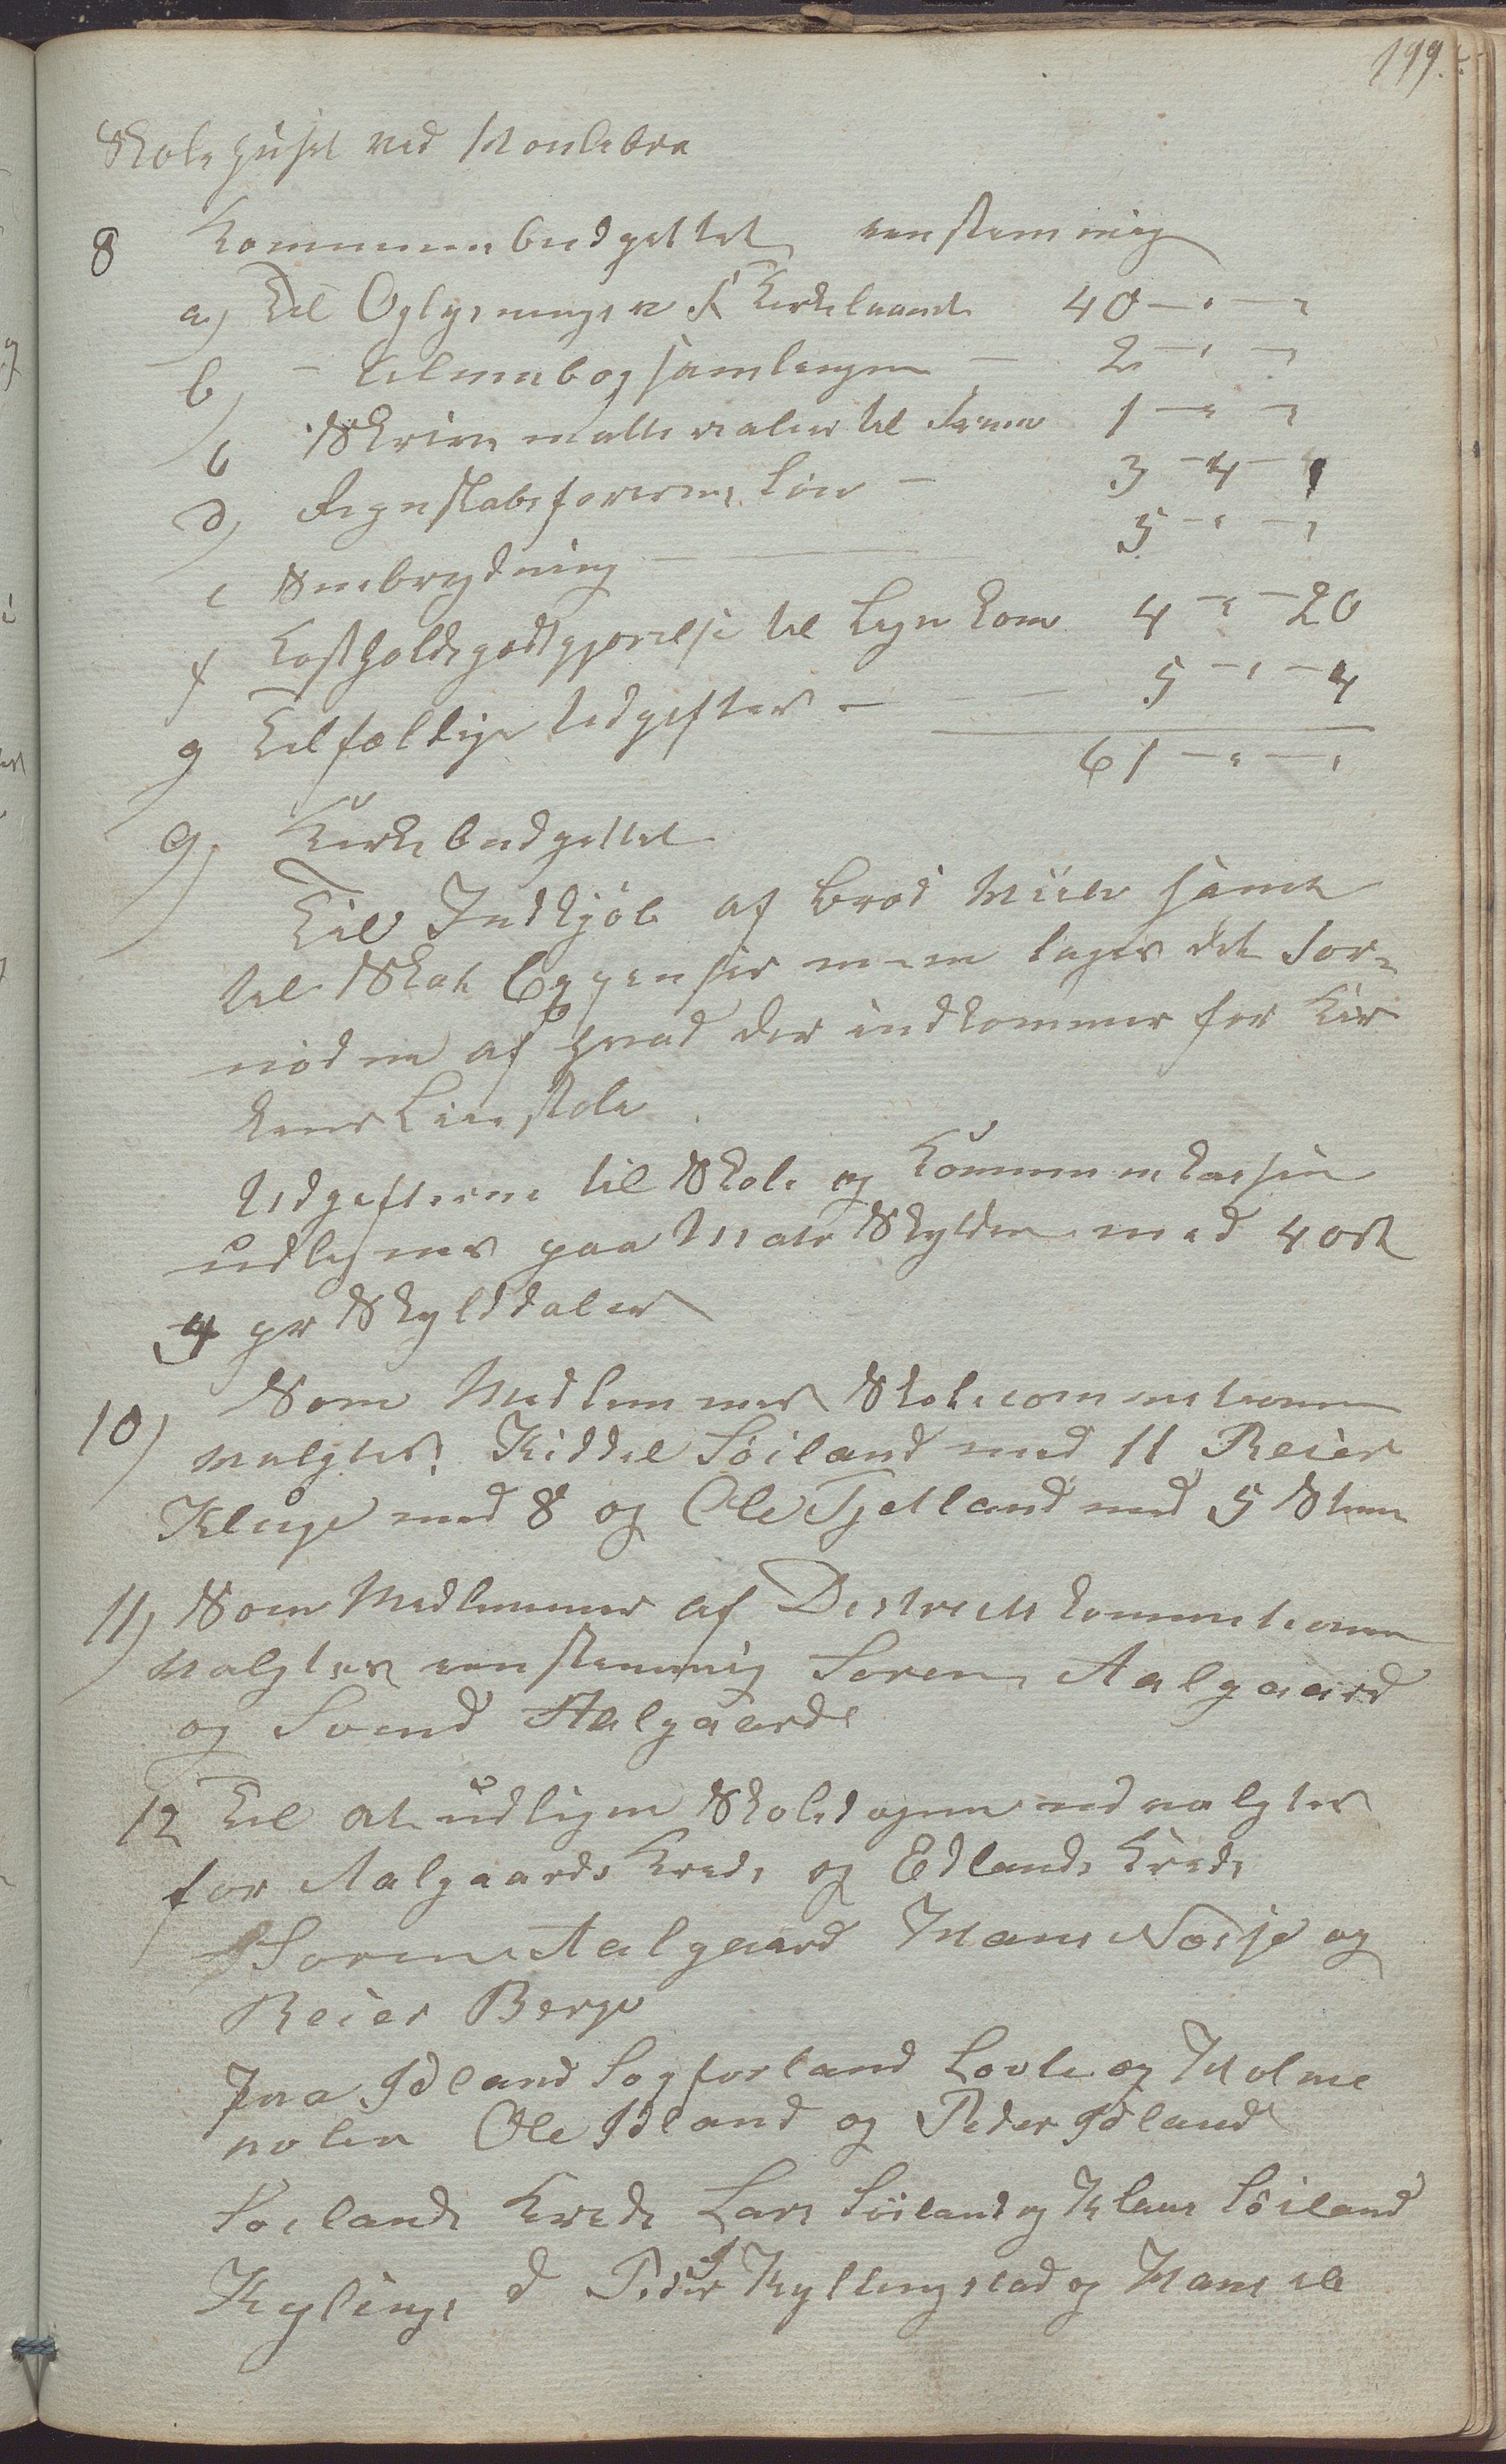 199.
Skolehuset ved
8 Kommunebudgettet eenstemmig
a) Til Oplysninger f Kirkelaand 40 – " – "
b) – Almuebogsamlingen – 2 – " – "
c Skrivematterialier til 1 – " – "
d) Regnskabsførerens Løn – 3 – 4 – 4
e Snebrydning – 5 – " – "
f Kostholdsgodtgjørelse til Lign Kom 4 – " – 20
g Tilfældige Udgifter – 5 – " – 4
61 – " – "
9) Kirkebudgettet
Til Indkjøb af Brød Viin samt
til Skat Expenser m m tages det for-
nødne af hvad der indkommer for Kir
kens Liiestole
Udgifterne til Skole og Kommunekassen
udlignes paa Matr Skylden med 4 ort
4 pr Skylddaler
10) Som Medlemmer Skolecommetionen
valgtes: Kiddel Söiland med 11 Reier
Kluge med 8 og Ole Tjetland med 5 Stem
11) Som Medlemmer af Districts kommetionen
valgtes eenstemmig Soren Aalgaard
og Svend Aalgaard
12 Til at udligne Skoledagene udvalgtes
for Aalgaards Kreds og Edlands Kreds
Soren Aalgaard Hans Næsje og
Reier Berge
Paa Idland Fogforland Lovle og Holme
Ole Idland og Peder Idland
Soilands Kreds Lars Söiland og Klaus Söiland
Kylings d Peder Kyllingstad og Hans